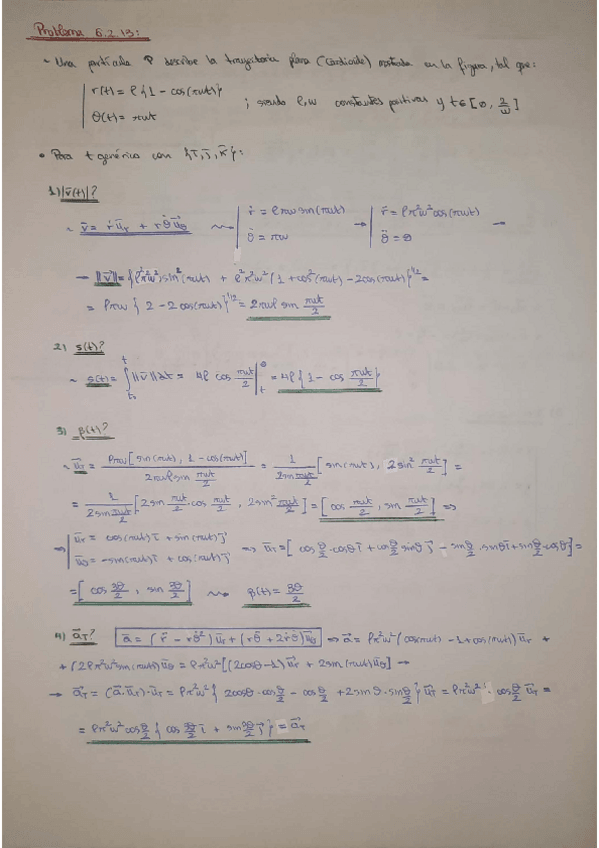 Problema 6.2.13:
~ Una partícula P describe la trayectoria plana (Cardioide) mostrada en la figura, tal que:
r(t) = ρ{1 - cos(πωt)}
θ(t) = πωt ; siendo ρ,ω constantes positivas y t∈[0, 2/ω]
• Para t genérico con {ī, j̄, k̄}:
1) |v̄(t)|?
~ v̄ = ṙ ū_r + r θ̇ ū_θ ⇝ ṙ = ρπω sin(πωt) → r̈ = ρπ²ω² cos(πωt) →
θ̇ = πω θ̈ = 0
→ ||v̄|| = {ρ²π²ω² sin²(πωt) + ρ²π²ω²(1 + cos²(πωt) - 2cos(πωt)}^1/2 =
= ρπω {2 - 2cos(πωt)}^1/2 = 2πωρ sin πωt/2
2) s(t)?
~ s(t) = ∫_{t₀}^{t} ||v̄|| dt = 4ρ cos πωt/2 |_t^0 = 4ρ{1 - cos πωt/2}
3) β(t)?
~ ū_T = ρπω[sin(πωt), 1 - cos(πωt)] / 2πωρ sin πωt/2 = 1 / 2sin πωt/2 [sin(πωt), 2sin² πωt/2] =
= 1 / 2sin πωt/2 [2sin πωt/2 · cos πωt/2, 2sin² πωt/2] = [cos πωt/2, sin πωt/2] ⇒
⇒ ū_r = cos(πωt) ī + sin(πωt) j̄
ū_θ = -sin(πωt) ī + cos(πωt) j̄ ⇒ ū_T = [cos θ/2 · cosθ ī + cos θ/2 sinθ j̄ - sin θ/2 · sinθ ī + sin θ/2 · cosθ] =
= [cos 3θ/2, sin 3θ/2] ⇝ β(t) = 3θ/2
4) ā_T? ā = (r̈ - rθ̇²) ū_r + (rθ̈ + 2ṙθ̇) ū_θ ⇒ ā = ρπ²ω²(cos πωt - 1 + cos(πωt)) ū_r +
+ (2ρπ²ω² sin(πωt)) ū_θ = ρπ²ω² [(2cosθ - 1) ū_r + 2sin(πωt) ū_θ] →
→ ā_T = (ā · ū_T) · ū_T = ρπ²ω² {2cosθ · cos θ/2 - cos θ/2 + 2sinθ · sin θ/2} ū_T = ρπ²ω² · cos θ/2 ū_T =
= ρπ²ω² cos θ/2 {cos 3θ/2 ī + sin 3θ/2 j̄} = ā_T